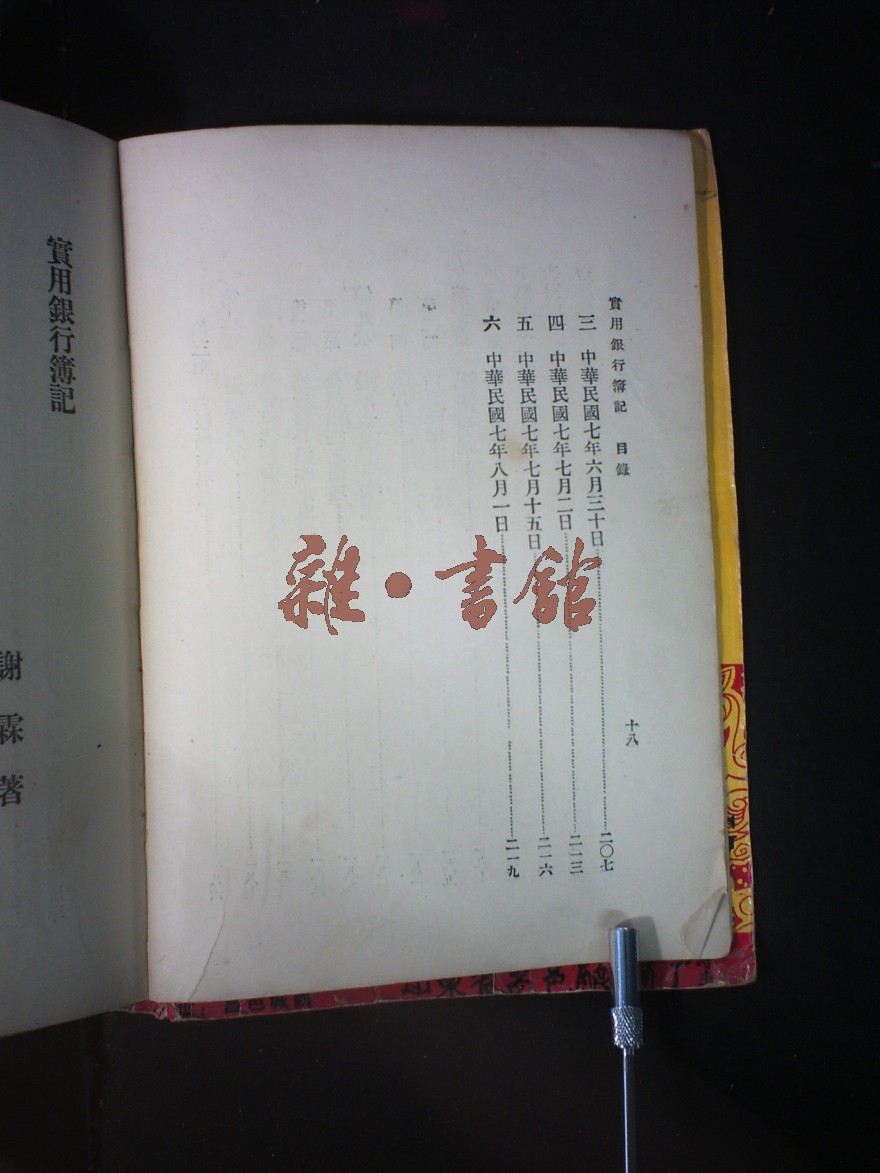 實用銀行簿記 目錄
十八
三 中華民國七年六月三十日……二〇七
四 中華民國七年七月二日……二一三
五 中華民國七年七月十五日……二一六
六 中華民國七年八月一日……二一九
實用銀行簿記
謝霖著
雜·書館